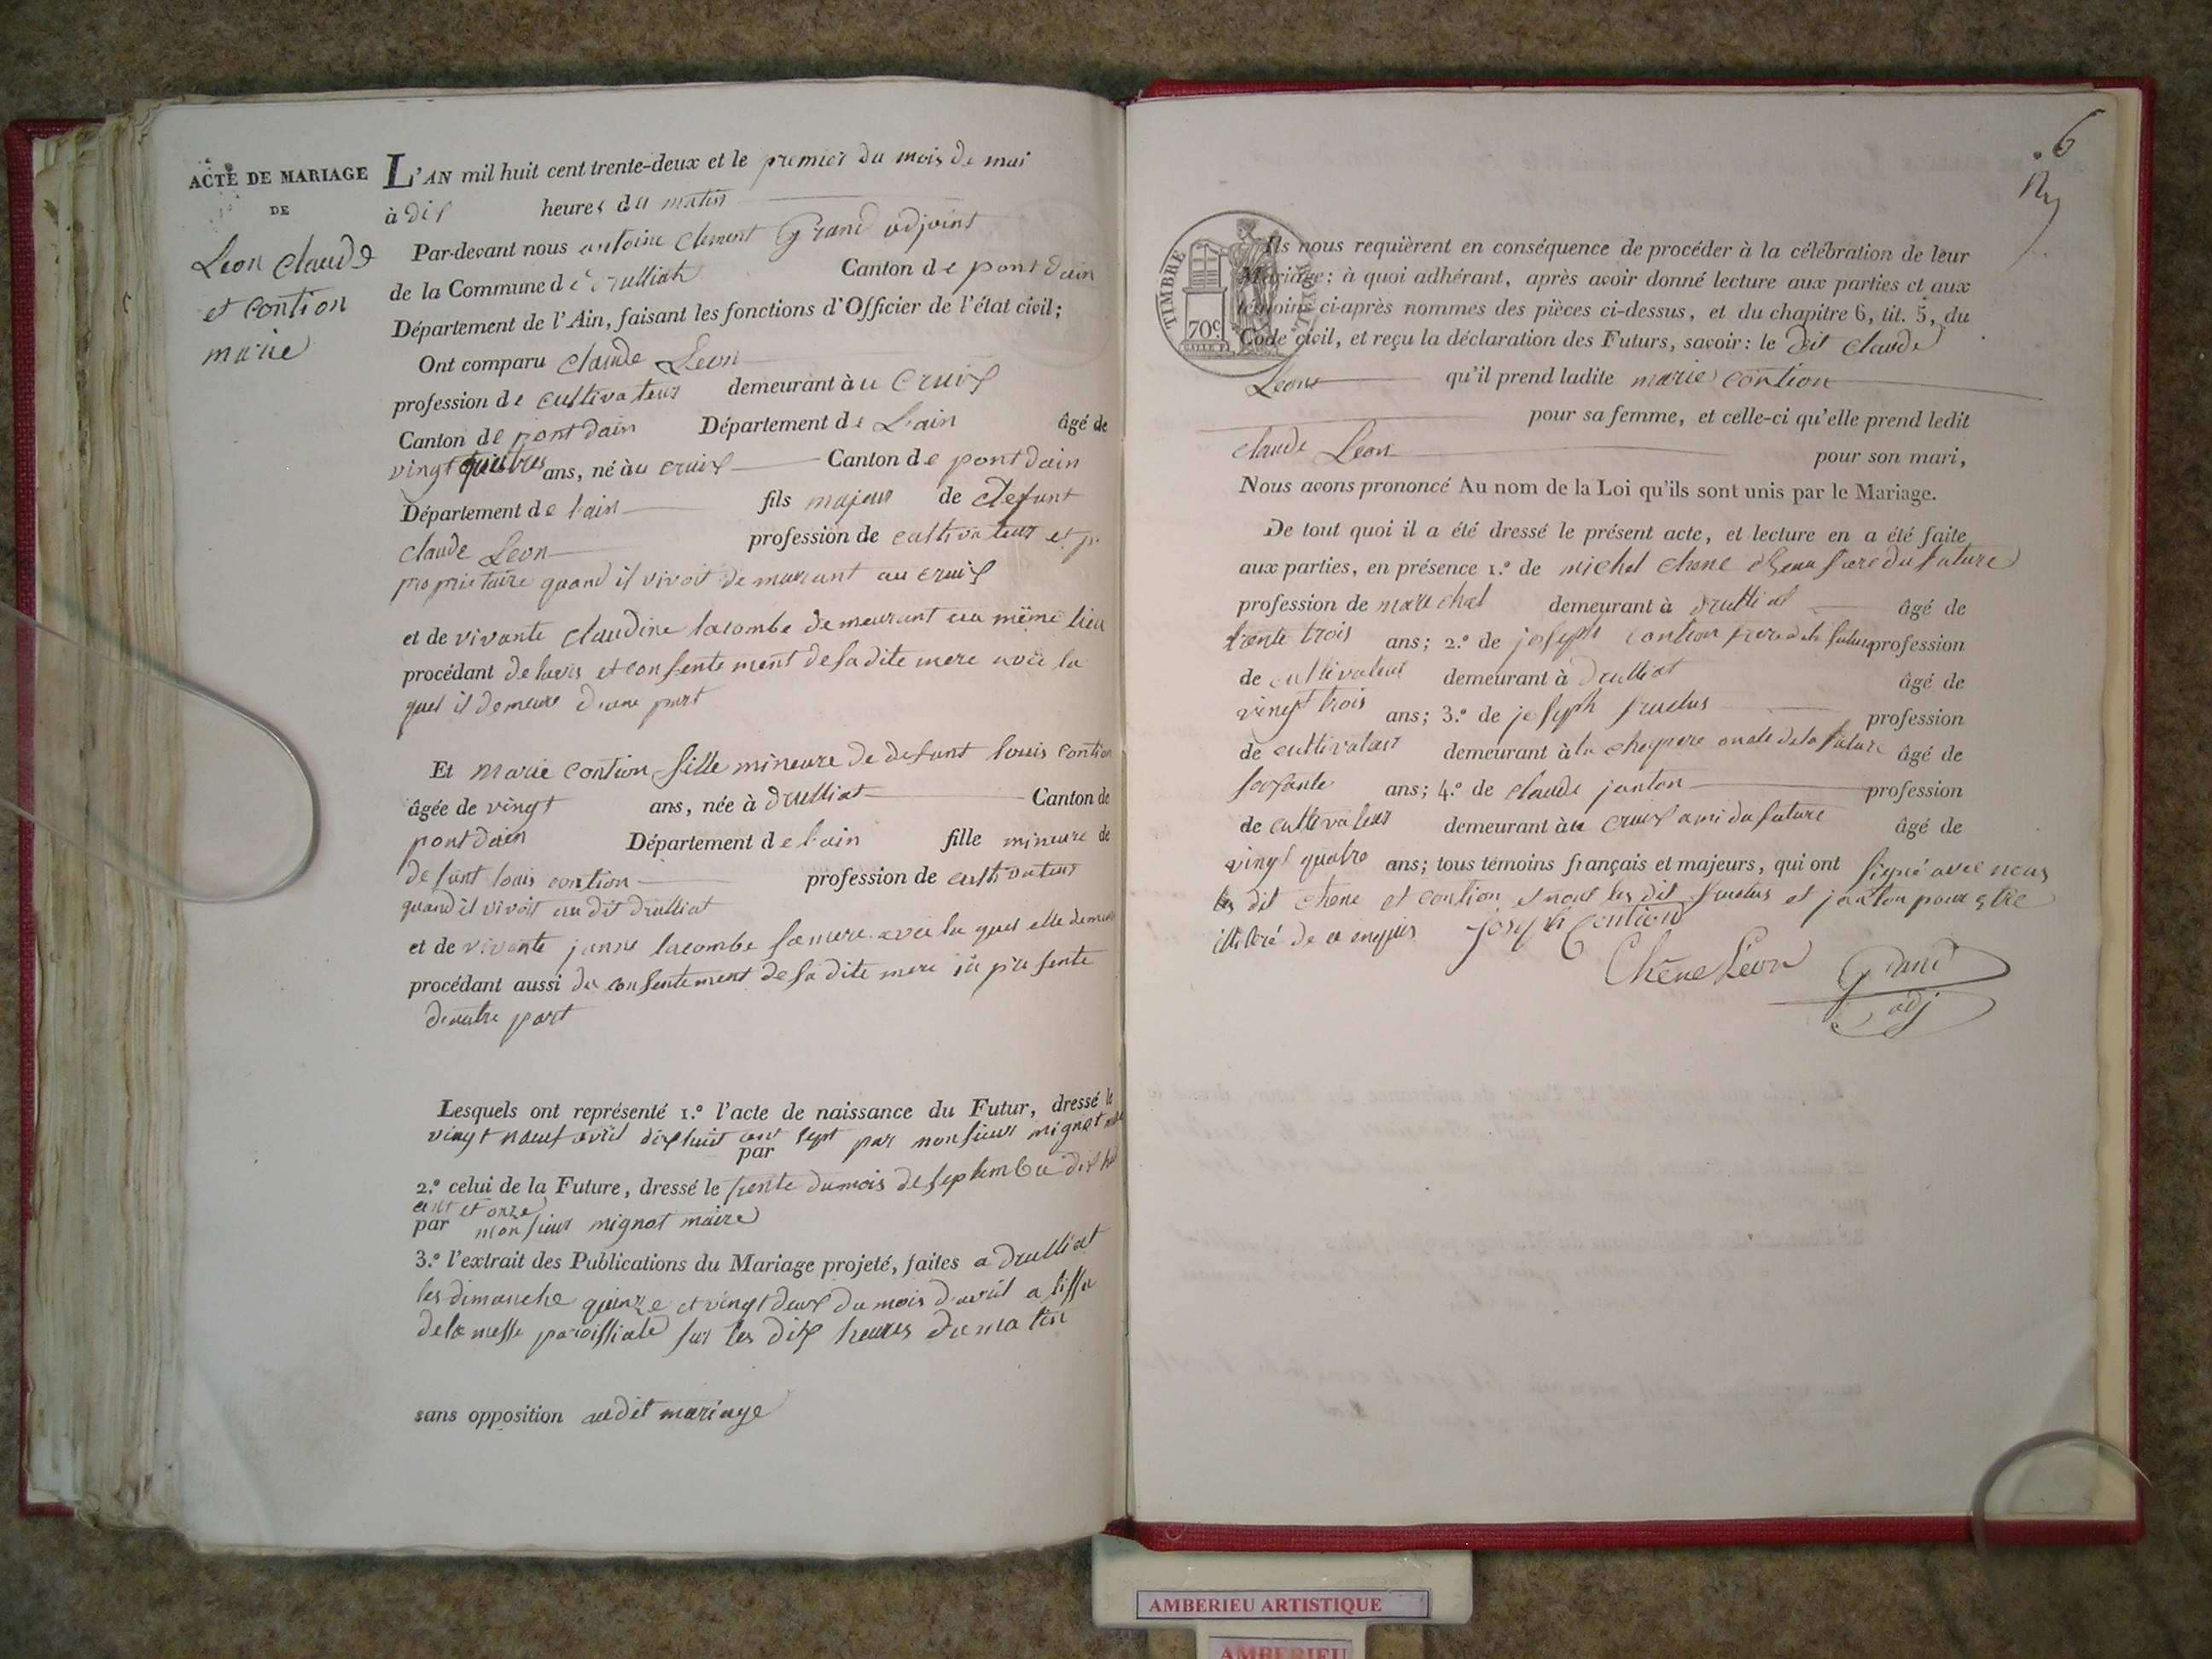 ACTE DE MARIAGE
DE
Leon claude
et contion
marie
L'AN mil huit cent trente-deux et le premier du mois de mai
à dix heures du matin
Par-devant nous antoine clement Grand adjoint
de la Commune de drulliat Canton de pont dain
Département de l'Ain, faisant les fonctions d'Officier de l'état civil;
Ont comparu claude Leon
profession de cultivateur demeurant àu cruix
Canton de pont dain Département de Lain âgé de
vingt quatres ans, né àu cruix Canton de pont dain
Département de lain fils majeur de defunt
claude Leon profession de cultivateur et p.
proprietaire quand il vivoit demeurant au cruix
et de vivante claudine lacombe demeurant au même lieu
procédant de lavis et consentement de sa dite mere avec la
quel il demeure dune part
Et marie contion fille mineure de defunt louis contion
âgée de vingt ans, née à drulliat Canton de
pont dain Département de lain fille mineure de
defunt louis contion profession de cultivateur
quand il vivoit au dit drulliat
et de vivante janne lacombe sa mere avec la quel elle demeure
procédant aussi du consentement de sa dite mere ici presente
dautre part
Lesquels ont représenté 1.º l'acte de naissance du Futur, dressé le
vingt neuf avril dix huit cent sept par monsieur mignot
par
2.º celui de la Future, dressé le trente du mois de septembre dix huit
cent et onze
par monsieur mignot maire
3.º l'extrait des Publications du Mariage projeté, faites a drulliat
les dimanche quinze et vingt deux du mois davril a lissu
de la messe paroissiale sur les dix heures du matin
sans opposition audit mariage
6
TIMBRE ROYAL
70c
Ils nous requièrent en conséquence de procéder à la célébration de leur
Mariage: à quoi adhérant, après avoir donné lecture aux parties et aux
témoins ci-après nommes des pièces ci-dessus, et du chapitre 6, tit. 5, du
Code civil, et reçu la déclaration des Futurs, savoir: le dit claude
Leon qu'il prend ladite marie contion
pour sa femme, et celle-ci qu'elle prend ledit
claude Leon pour son mari,
Nous avons prononcé Au nom de la Loi qu'ils sont unis par le Mariage.
De tout quoi il a été dressé le présent acte, et lecture en a été faite
aux parties, en présence 1.º de michel chene beau frere du future
profession de marechal demeurant à drulliat âgé de
trente trois ans; 2.º de joseph contion frere de la future profession
de cultivateur demeurant à drulliat âgé de
vingt trois ans; 3.º de joseph fructus profession
de cultivateur demeurant à la chapere oncle de la future âgé de
soixante ans; 4.º de claude janton profession
de cultivateur demeurant àu cruix ami du future âgé de
vingt quatre ans; tous témoins français et majeurs, qui ont signé avec nous
les dit chene et contion et nont les dit fructus et janton pour etre
illiteré de ce enquis joseph Contion
Chêne Léon Grand
adj
AMBERIEU ARTISTIQUE
AMBERIEU